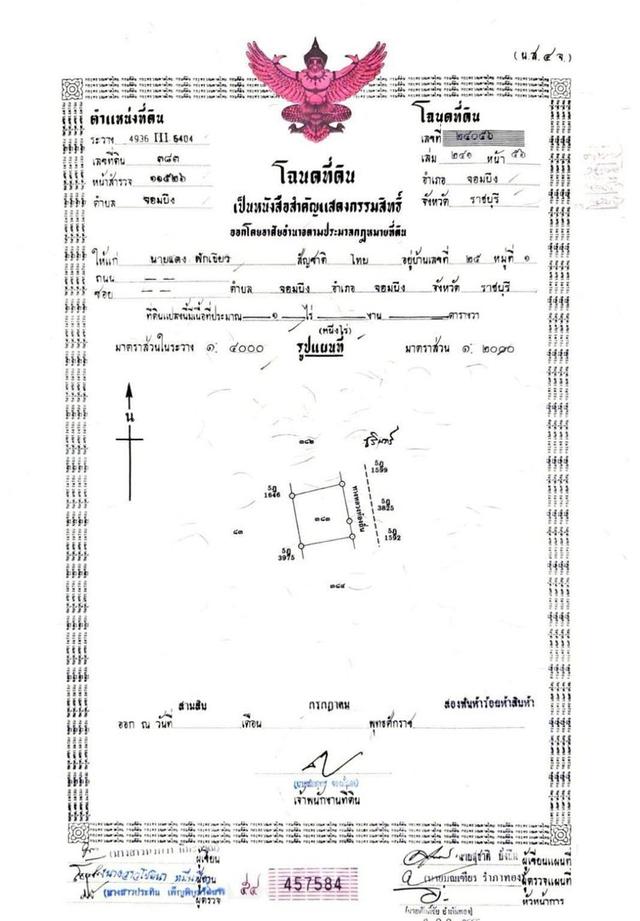 (น.ส.๔ จ.)
ตำแหน่งที่ดิน
ระวาง 4936 III 6404
เลขที่ดิน ๓๘๓
หน้าสำรวจ ๑๑๕๒๖
ตำบล จอมบึง
โฉนดที่ดิน
เลขที่ ๒๔๐๕๖
เล่ม ๒๔๑ หน้า ๕๖
อำเภอ จอมบึง
จังหวัด ราชบุรี
โฉนดที่ดิน
เป็นหนังสือสำคัญแสดงกรรมสิทธิ์
ออกโดยอาศัยอำนาจตามประมวลกฎหมายที่ดิน
ให้แก่ นายแดง ฟักเขียว สัญชาติ ไทย อยู่บ้านเลขที่ ๒๕ หมู่ที่ ๑
ถนน — —
ซอย — — ตำบล จอมบึง อำเภอ จอมบึง จังหวัด ราชบุรี
ที่ดินแปลงนี้มีเนื้อที่ประมาณ ๑ ไร่ — งาน — ตารางวา
(หนึ่งไร่)
มาตราส่วนในระวาง ๑: ๔๐๐๐ รูปแผนที่ มาตราส่วน ๑: ๒๐๐๐
น
๓๘๒
5ฎ
1599
5ฎ
1646
5ฎ
3825
๓๘๓
๘๓
5ฎ
1592
5ฎ
3975
๓๘๔
สามสิบ กรกฎาคม สองพันห้าร้อยห้าสิบห้า
ออก ณ วันที่ เดือน พุทธศักราช
เจ้าพนักงานที่ดิน
ผู้เขียน
ผู้ตรวจ
457584
ผู้เขียนแผนที่
ผู้ตรวจแผนที่
หัวหน้าการ